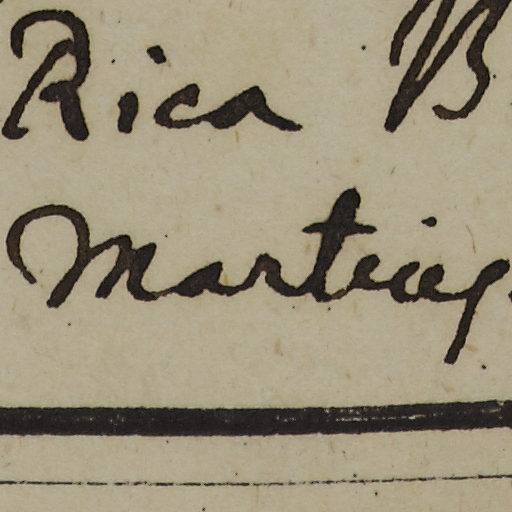 Rica B
Martiuq